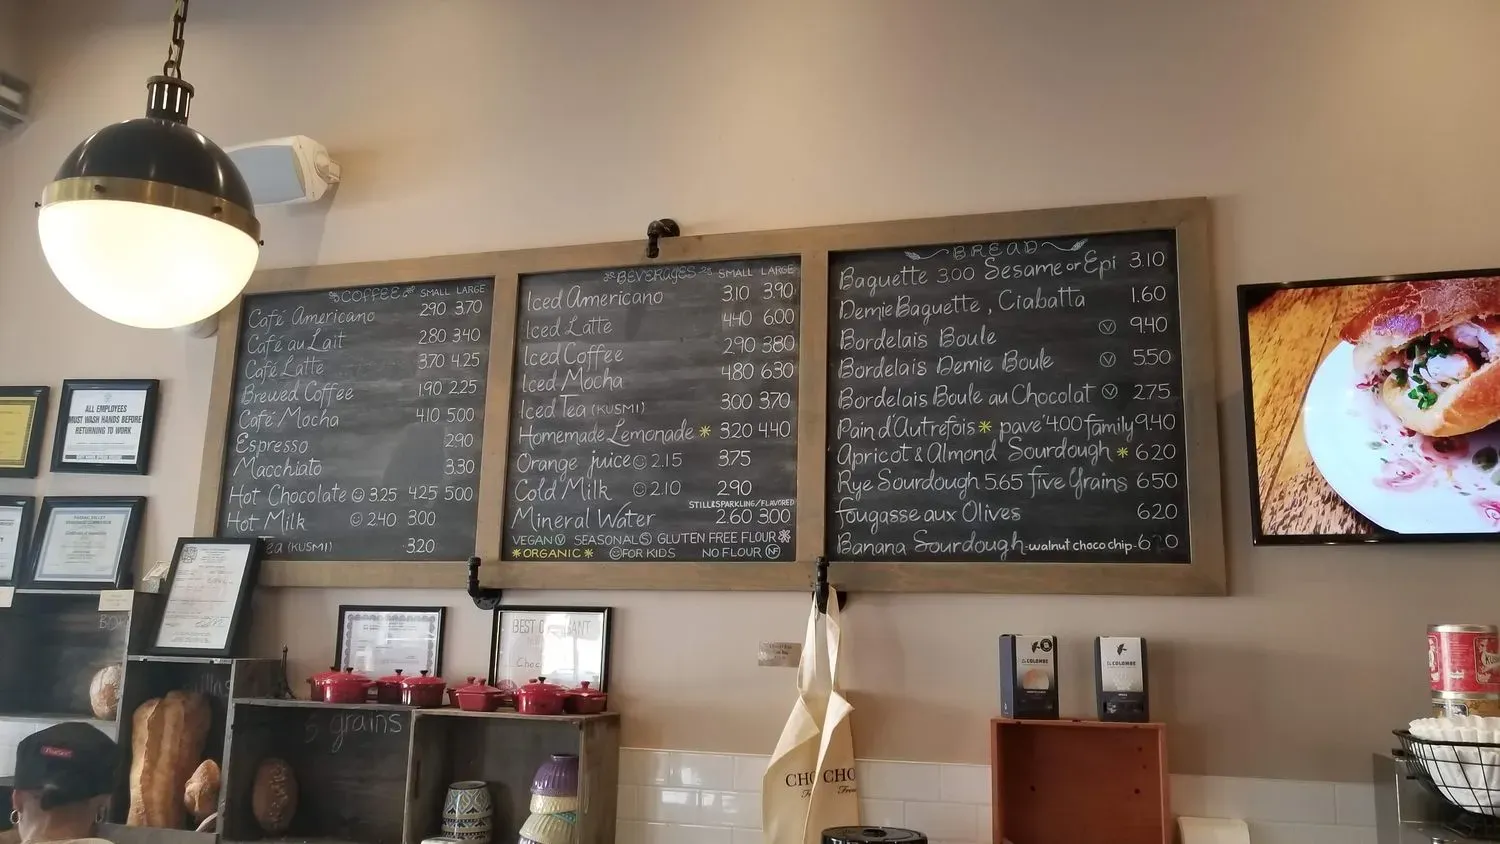 COFFEE SMALL LARGE
Café Americano 2.90 3.70
Café au Lait 2.80 3.40
Café Latte 3.70 4.25
Brewed Coffee 1.90 2.25
Café Mocha 4.10 5.00
Espresso 2.90
Macchiato 3.30
Hot Chocolate ☺ 3.25 4.25 5.00
Hot Milk ☺ 2.40 3.00
Tea (KUSMI) 3.20
BEVERAGES SMALL LARGE
Iced Americano 3.10 3.90
Iced Latte 4.40 6.00
Iced Coffee 2.90 3.80
Iced Mocha 4.80 6.30
Iced Tea (KUSMI) 3.00 3.70
Homemade Lemonade * 3.20 4.40
Orange juice ☺ 2.15 3.75
Cold Milk ☺ 2.10 2.90
STILL&SPARKLING/FLAVORED
Mineral Water 2.60 3.00
VEGAN Ⓥ SEASONAL Ⓢ GLUTEN FREE FLOUR
*ORGANIC* ☺ FOR KIDS NO FLOUR NF
BREAD
Baguette 3.00 Sesame or Epi 3.10
Demie Baguette, Ciabatta 1.60
Bordelais Boule Ⓥ 9.40
Bordelais Demie Boule Ⓥ 5.50
Bordelais Boule au Chocolat Ⓥ 2.75
Pain d'Autrefois * pavé 4.00 family 9.40
Apricot & Almond Sourdough * 6.20
Rye Sourdough 5.65 five Grains 6.50
fougasse aux Olives 6.20
Banana Sourdough-walnut choco chip-
ALL EMPLOYEES
MUST WASH HANDS BEFORE
RETURNING TO WORK
BEST
Choc
5 grains
LA COLOMBE
LA COLOMBE
CHO CHO